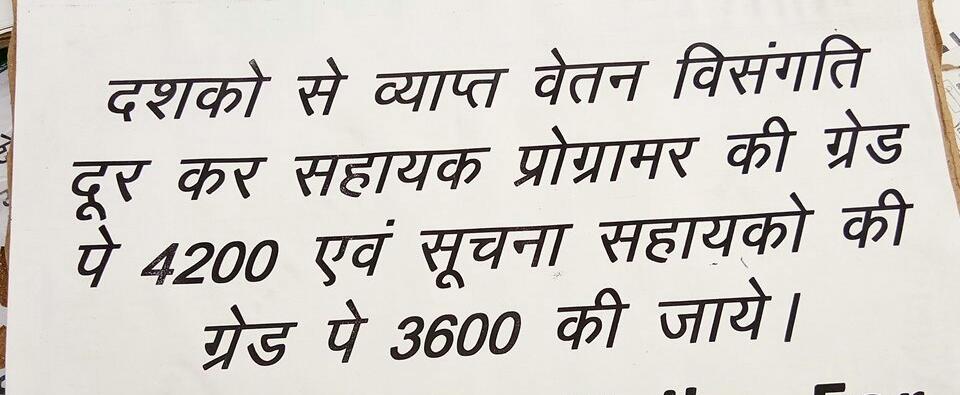 दशको से व्याप्त वेतन विसंगति
दूर कर सहायक प्रोग्रामर की ग्रेड
पे 4200 एवं सूचना सहायको की
ग्रेड पे 3600 की जाये।